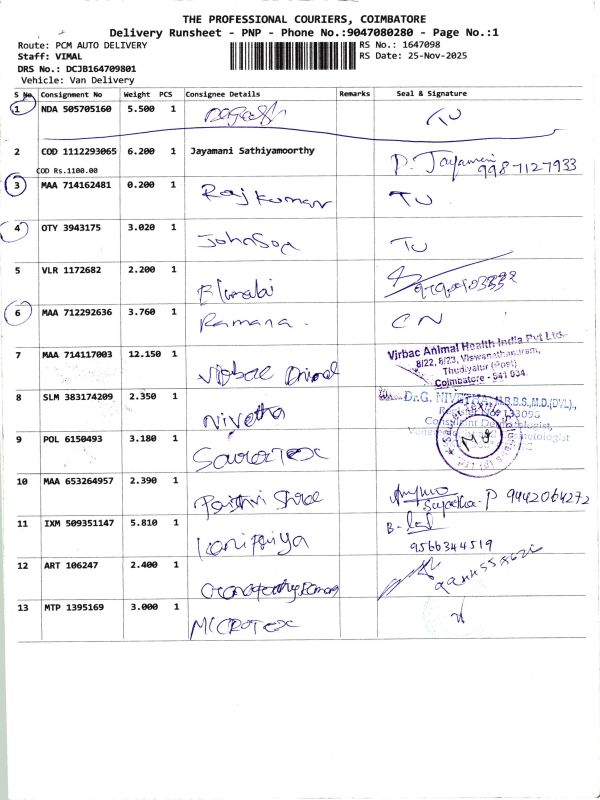 THE PROFESSIONAL COURIERS, COIMBATORE
Delivery Runsheet - PNP - Phone No.:9047080280 - Page No.:1
Route: PCM AUTO DELIVERY RS No.: 1647098
Staff: VIMAL RS Date: 25-Nov-2025
DRS No.: DCJB164709801
Vehicle: Van Delivery
S No. Consignment No Weight PCS Consignee Details Remarks Seal & Signature
1 NDA 505705160 5.500 1 TU
2 COD 1112293065 6.200 1 Jayamani Sathiyamoorthy P. Jayamani
COD Rs.1100.00 9987127933
3 MAA 714162481 0.200 1 Rajkumar TU
4 OTY 3943175 3.020 1 Johnson TU
5 VLR 1172682 2.200 1
6 MAA 712292636 3.760 1 Ramana. CN
7 MAA 714117003 12.150 1 Virbac Animal
Virbac Animal Health India Pvt Ltd.
8/22, 6/23, Viswanathapuram,
Thudiyalur (Post)
Coimbatore - 641 034.
8 SLM 383174209 2.350 1 Nivetha
Dr.G. NIVETHA M.B.B.S.,M.D.(DVL).,
Consultant Dermatologist,
9 POL 6150493 3.180 1
10 MAA 653264957 2.390 1 Sujatha. P 9442064272
11 IXM 509351147 5.810 1
9566344519
12 ART 106247 2.400 1
13 MTP 1395169 3.000 1 MICROTEX